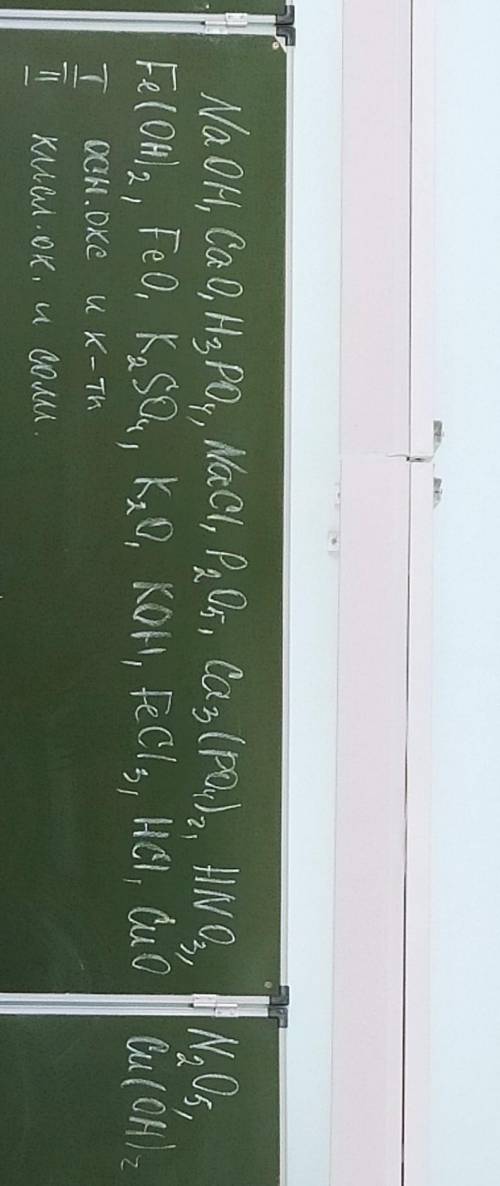 NaOH, CaO, H₃PO₄, NaCl, P₂O₅, Ca₃(PO₄)₂, HNO₃, N₂O₅,
Fe(OH)₂, FeO, K₂SO₄, K₂O, KOH, FeCl₃, HCl, CuO Cu(OH)₂
I осн. окс и к-ты
II кисл. ок. и соли.